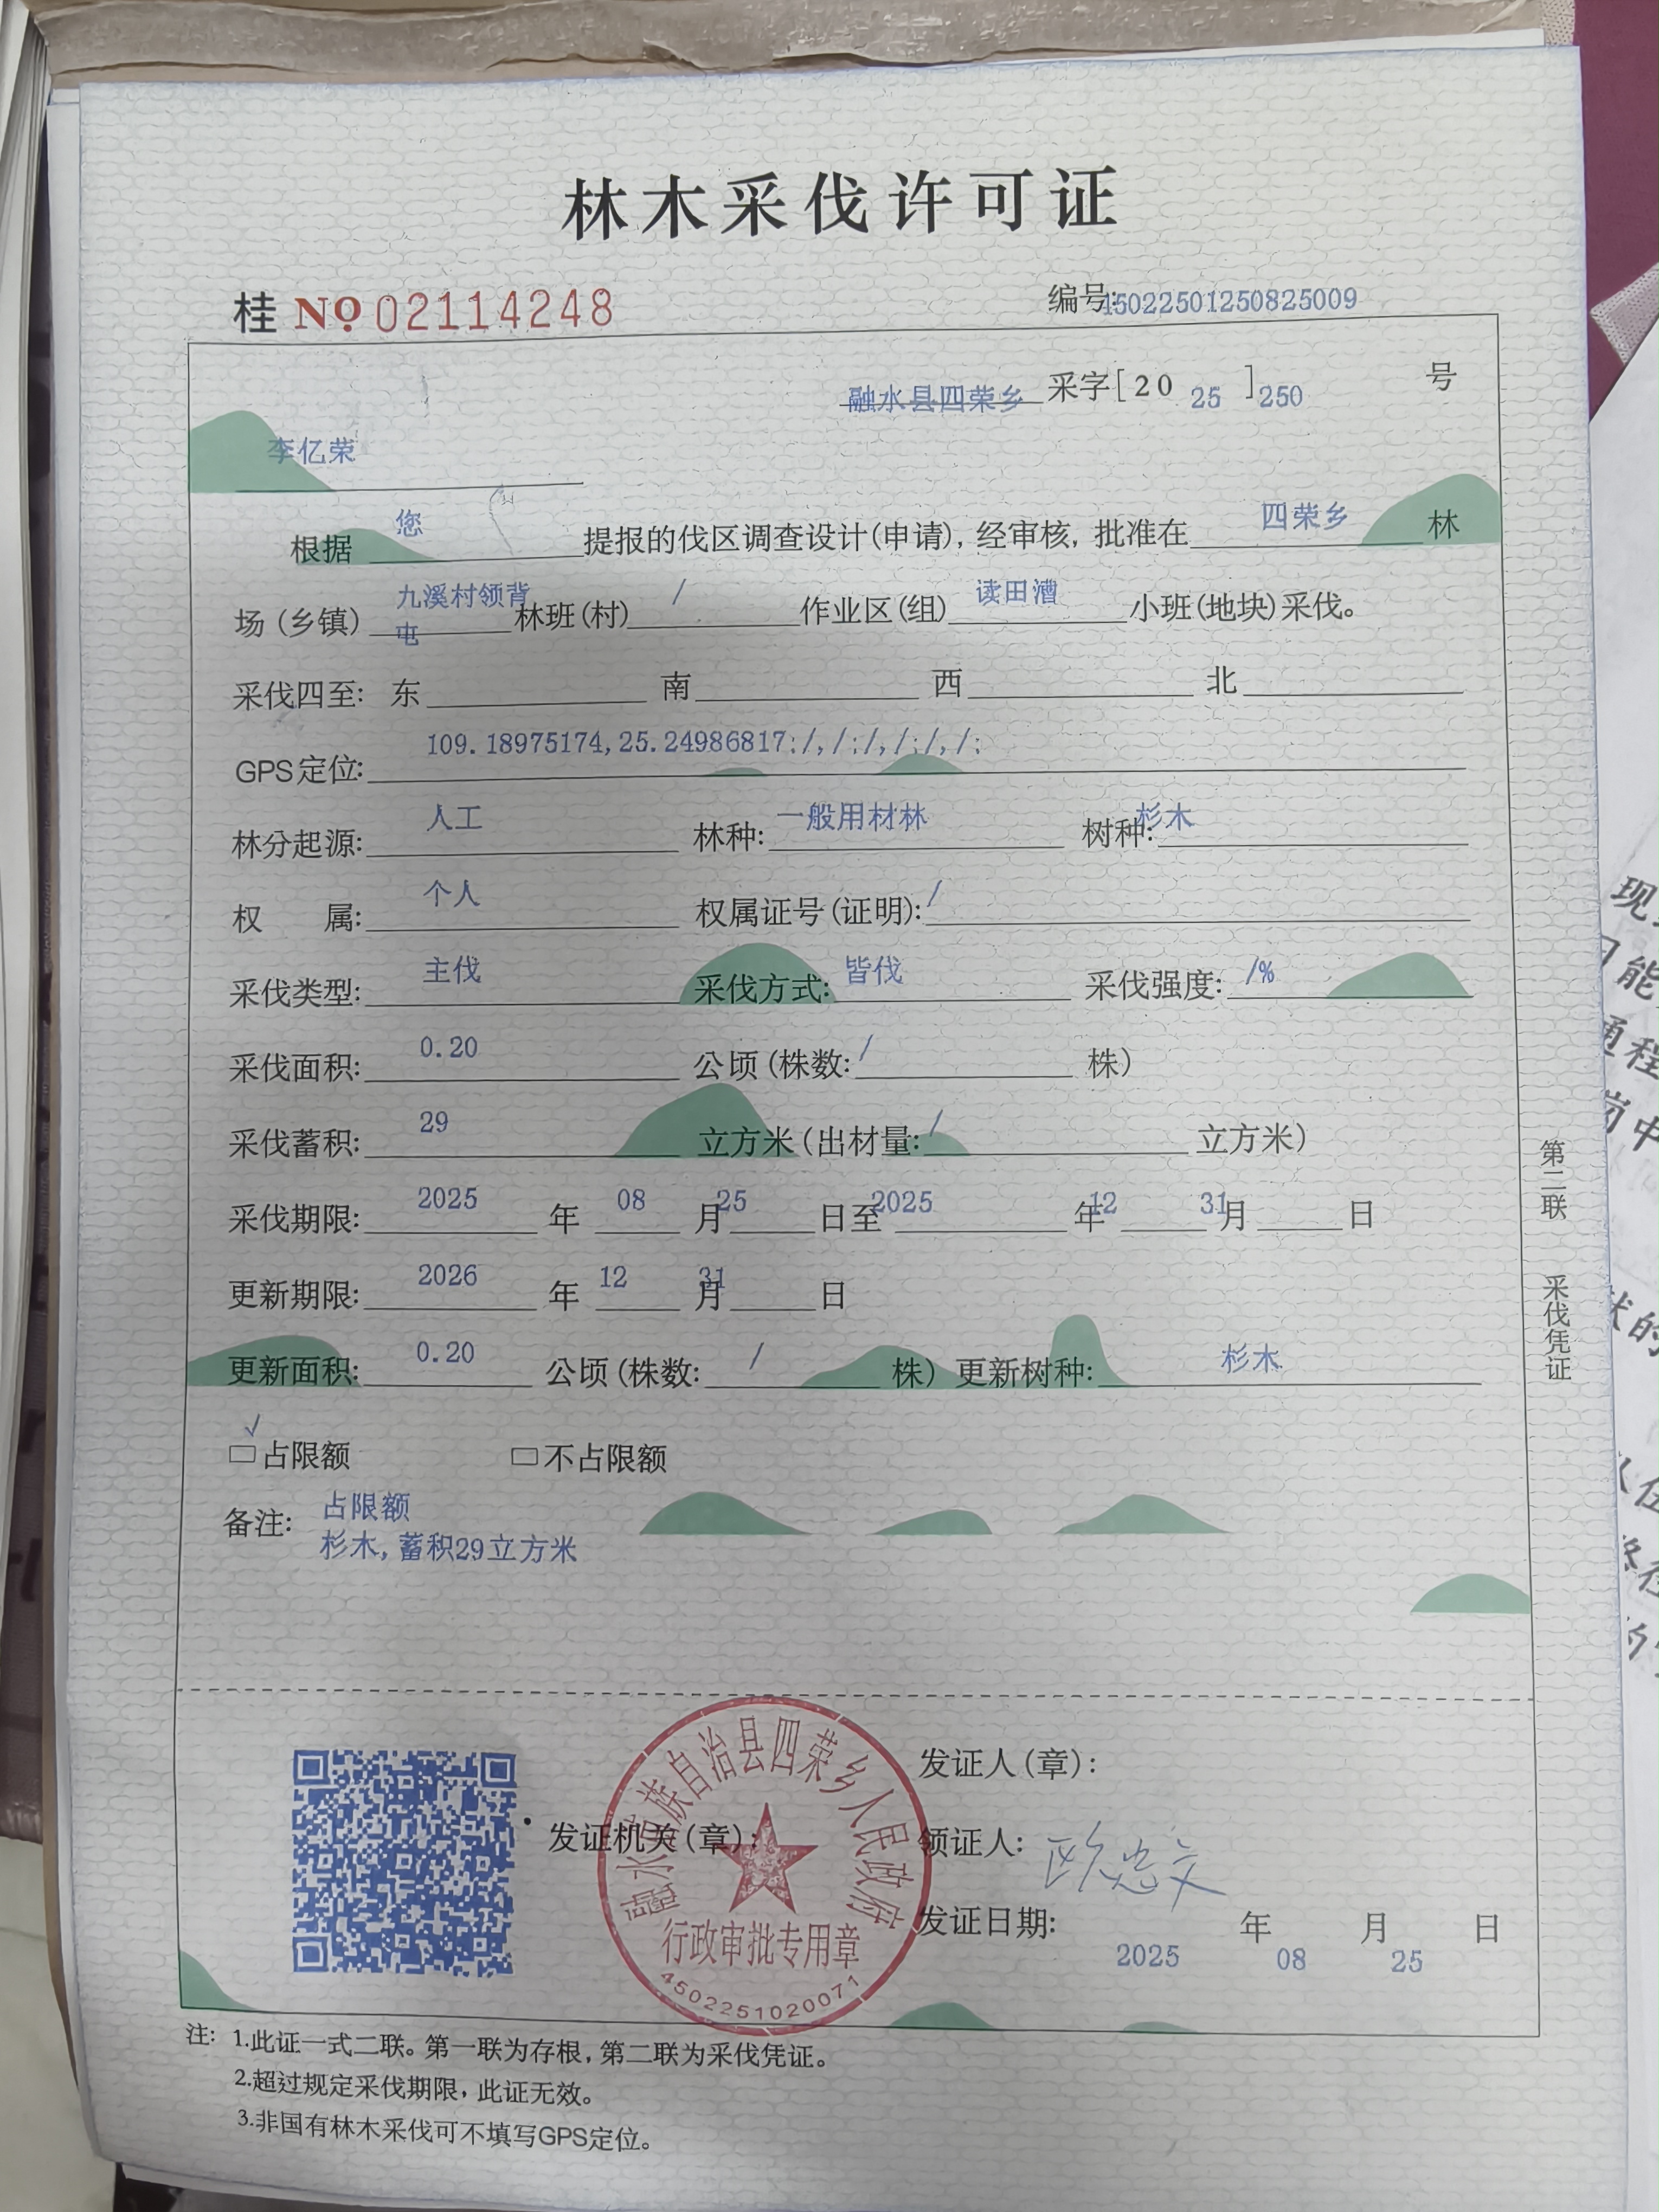 林木采伐许可证
桂 № 02114248 编号:45022501250825009
融水县四荣乡 采字[2025]250号
李亿荣
根据 您 提报的伐区调查设计(申请),经审核,批准在 四荣乡 林
场(乡镇) 九溪村领背屯 林班(村) / 作业区(组) 读田漕 小班(地块)采伐。
采伐四至: 东 南 西 北
GPS定位: 109.18975174,25.24986817;/,/;/,/;/,/;
林分起源: 人工 林种: 一般用材林 树种: 杉木
权 属: 个人 权属证号(证明): /
采伐类型: 主伐 采伐方式: 皆伐 采伐强度: /%
采伐面积: 0.20 公顷(株数: / 株)
采伐蓄积: 29 立方米(出材量: / 立方米)
采伐期限: 2025 年 08 月 25 日至 2025 年 12 月 31 日
更新期限: 2026 年 12 月 31 日
更新面积: 0.20 公顷(株数: / 株) 更新树种: 杉木
√
□占限额 □不占限额
备注: 占限额
杉木,蓄积29立方米
第二联 采伐凭证
发证机关(章):
融水苗族自治县四荣乡人民政府
行政审批专用章
4502251020071
发证人(章):
领证人: 欧忠文
发证日期: 2025 年 08 月 25 日
注: 1.此证一式二联。第一联为存根,第二联为采伐凭证。
2.超过规定采伐期限,此证无效。
3.非国有林木采伐可不填写GPS定位。